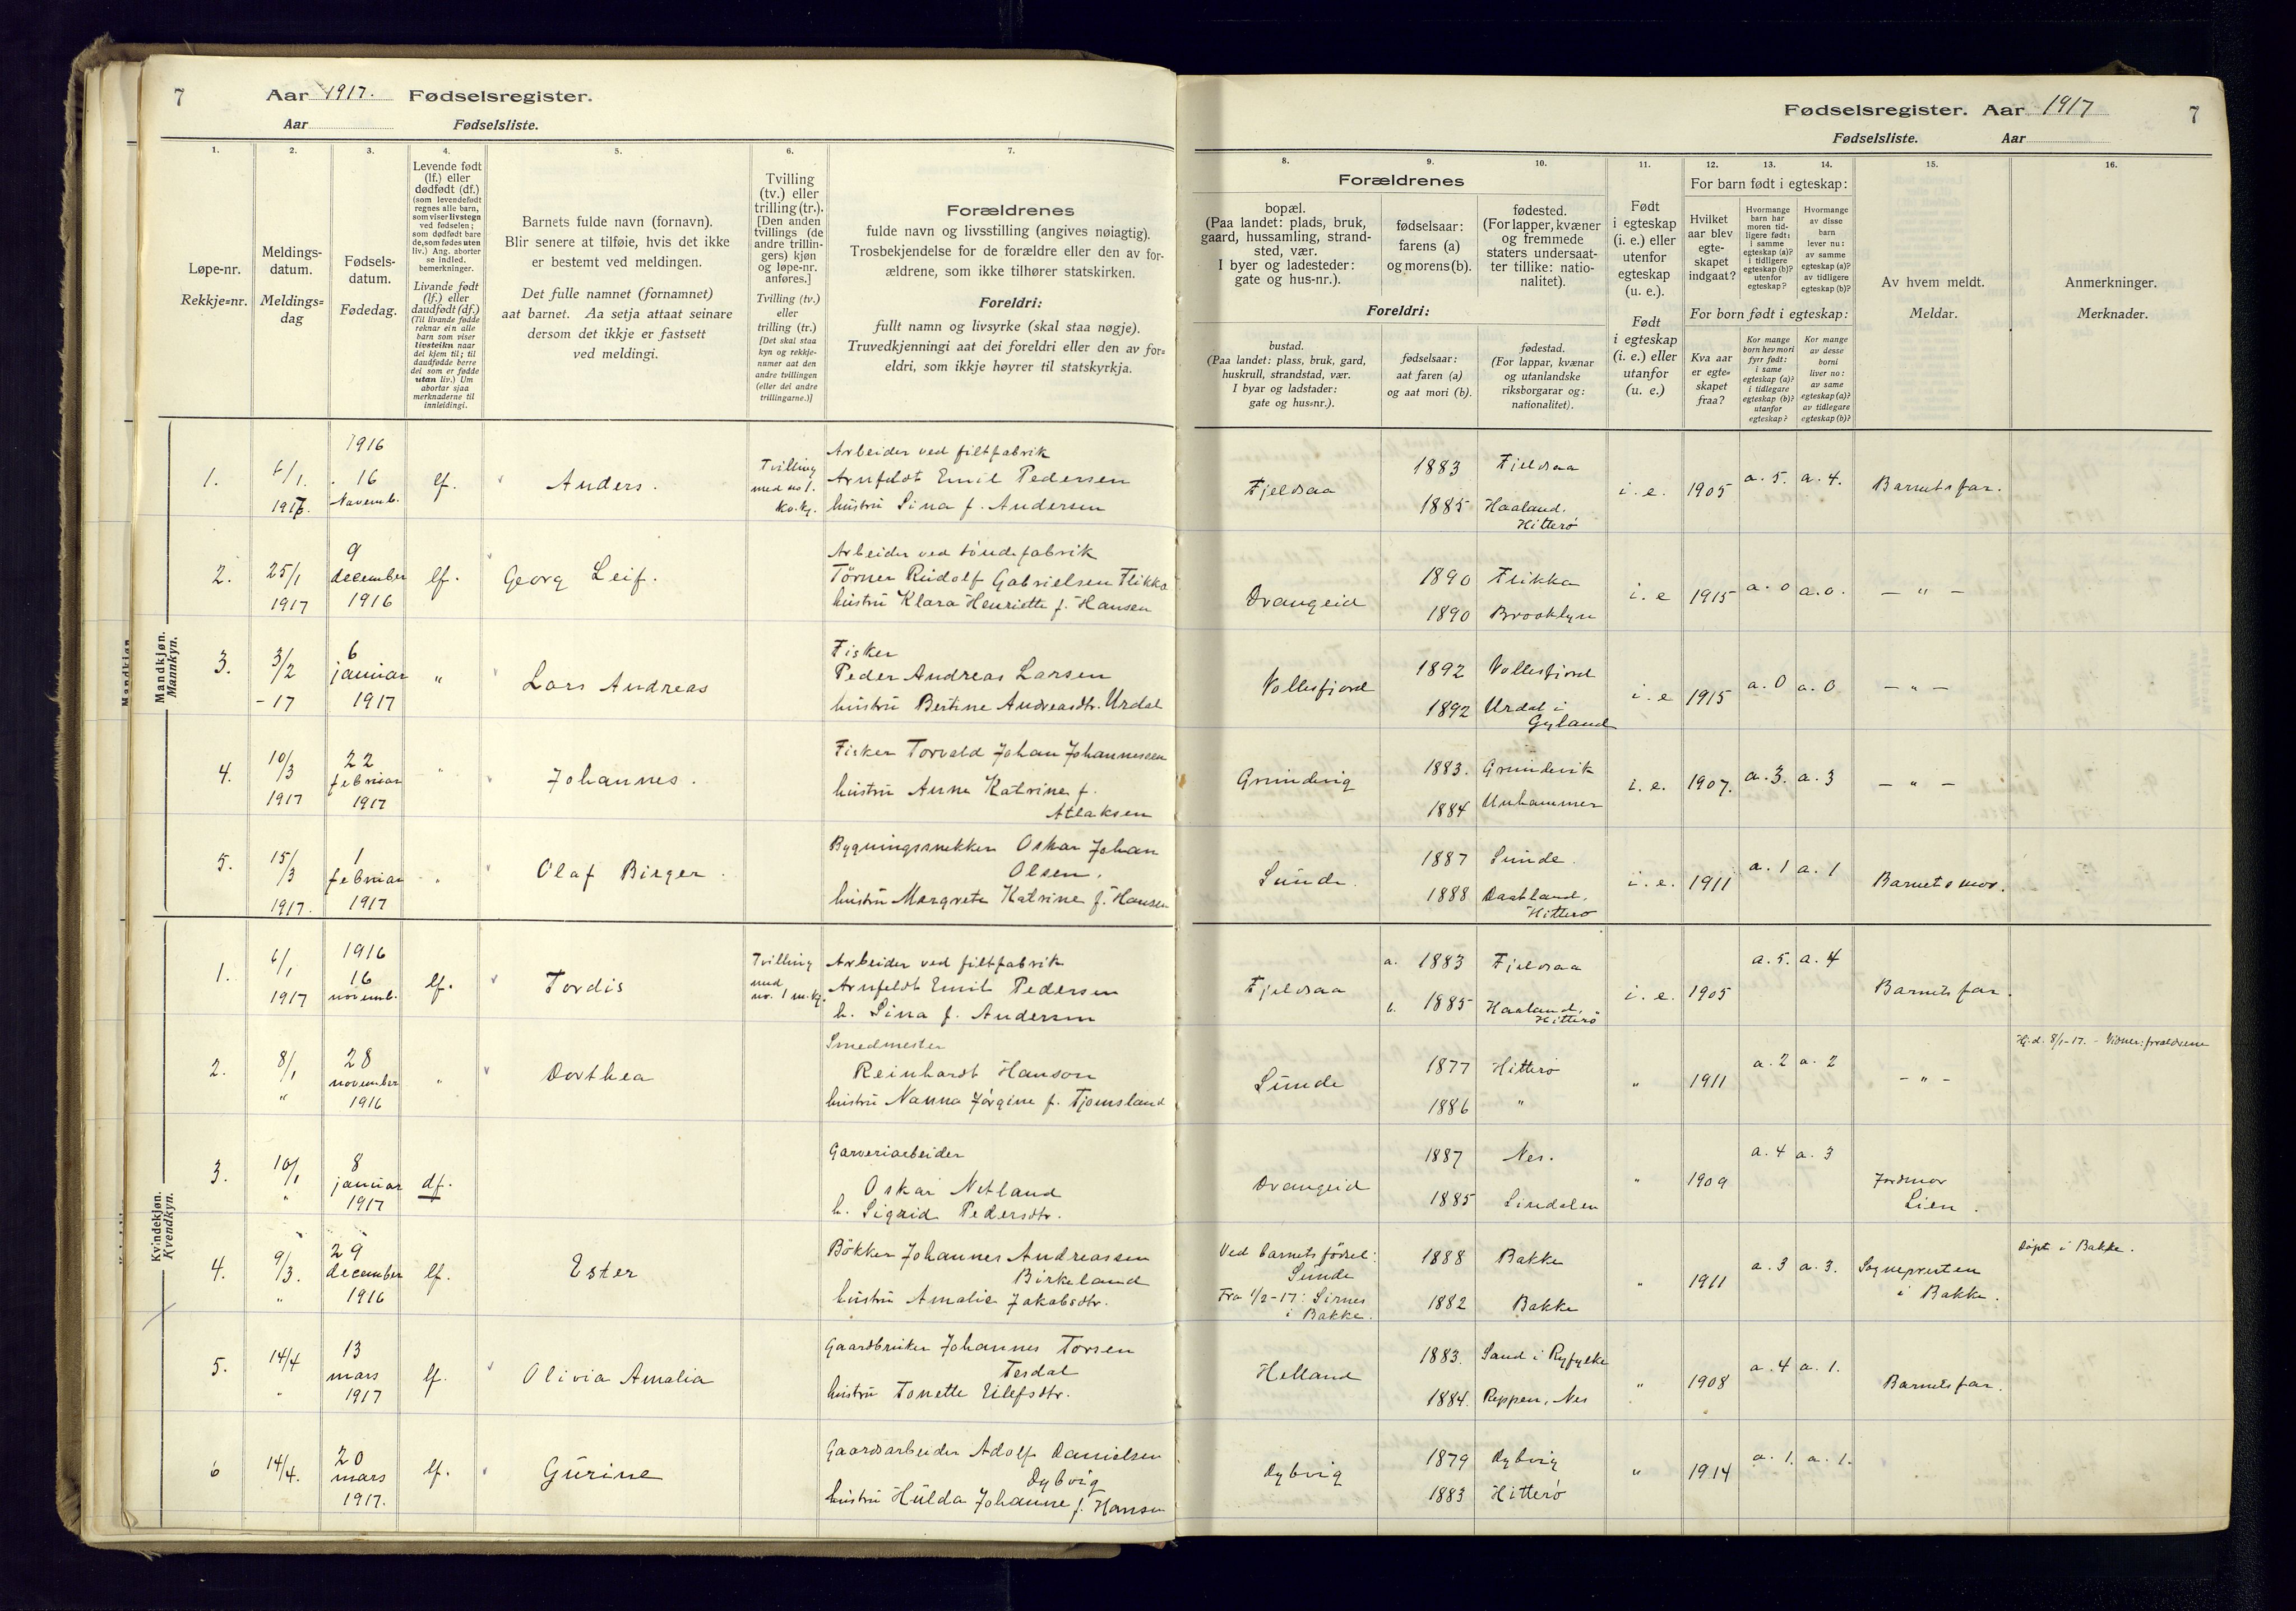 7
Aar 1917. Fødselsregister.
Aar Fødselsliste.
1.
2.
3.
4.
5.
6.
7.
Løpe-nr.
Rekkje=nr.
Meldings-
datum.
Meldings=
dag
Fødsels-
datum.
Fødedag.
Levende født
(lf.) eller
dødfødt (df.)
(som levendefødt
regnes alle barn,
som viser livstegn
ved fødselen;
som dødfødt bare
de, som fødes uten
liv.) Ang. aborter
se indled.
bemerkninger.
Livande født
(lf.) eller
daudfødt (df.)
(Til livande fødde
reknar ein alle
barn som viser
livsteikn naar
dei kjem til; til
daudfødde berre
dei som er fødde
utan liv.) Um
abortar sjaa
merknaderne til
innleidingi.
Barnets fulde navn (fornavn).
Blir senere at tilføie, hvis det ikke
er bestemt ved meldingen.
Det fulle namnet (fornamnet)
aat barnet. Aa setja attaat seinare
dersom det ikkje er fastsett
ved meldingi.
Tvilling
(tv.) eller
trilling (tr.).
[Den anden
tvillings (de
andre trillin-
gers) kjøn
og løpe-nr.
anføres.]
Tvilling (tv.)
eller
trilling (tr.)
[Det skal staa
kyn og rekkje-
numer aat den
andre tvillingen
(eller dei andre
trillingarne.)]
Forældrenes
fulde navn og livsstilling (angives nøiagtig).
Trosbekjendelse for de forældre eller den av for-
ældrene, som ikke tilhører statskirken.
Foreldri:
fullt namn og livsyrke (skal staa nøgje).
Truvedkjenningi aat dei foreldri eller den av for=
eldri, som ikkje høyrer til statskyrkja.
Mandkjøn.
Mannkyn.
1.
6/1.
1917.
1916
16
Novemb.
lf.
Anders.
Tvilling
med no 1.
kv.kj.
Arbeider ved filtfabrik
Arnfeldt Emil Pedersen
hustru Sina f. Andersen
2.
25/1
1917
9
december
1916
lf.
Georg Leif.
Arbeider ved töndefabrik
Törner Rudolf Gabrielsen Flikka
hustru Klara Henriette f. Hansen
3.
3/2
-17
6
januar
1917
"
Lars Andreas
Fisker
Peder Andreas Larsen
hustru Bertine Andreasdtr. Urdal
4.
10/3
1917
22
februar
1917
"
Johannes.
Fisker Torvald Johan Johannessen
hustru Anna Katrine f.
Atlaksen
5.
15/3
1917.
1
februar
1917
"
Olaf Birger.
Bygningssnekker Oskar Johan
Olsen.
hustru Margrete Katrine f. Hansen
Kvindekjøn.
Kvendkyn.
1.
6/1
1917
1916
16
novemb.
lf.
Tordis
Tvilling
med
nr. 1 m.kj.
Arbeider ved filtfabrik
Arnfeldt Emil Pedersen
h. Sina f. Andersen
2.
8/1
"
28
november
1916
"
Dorthea
Smedmester
Reinhardt Hanson
hustru Nanna Jørgine f. Tjomsland
3.
10/1
"
8
januar
1917
df.
Garveriarbeider
Oskar Netland
h. Sigrid Pedersdtr.
4.
9/3.
"
29
december
1916
lf.
Ester
Bökker Johannes Andreassen
Birkeland
hustru Amalie Jakobsdtr.
5.
14/4
"
13
mars
1917
lf.
Olivia Amalia
Gaardbruker Johannes Torsen
Tesdal
hustru Tonette Eilefsdtr.
6
14/4.
20
mars
1917.
lf.
Gurine
Gaardsarbeider Adolf Danielsen
Dybvig
hustru Hulda Johanne f. Hansen
Fødselsregister. Aar 1917
7
Fødselsliste. Aar
8.
9.
10.
11.
12.
13.
14.
15.
16.
Forældrenes
bopæl.
(Paa landet: plads, bruk,
gaard, hussamling, strand-
sted, vær.
I byer og ladesteder:
gate og hus-nr.).
fødselsaar:
farens (a)
og morens (b).
fødested.
(For lapper, kvæner
og fremmede
staters undersaat-
ter tillike: natio-
nalitet).
Foreldri:
bustad.
(Paa landet: plass, bruk, gard,
huskrull, strandstad, vær.
I byar og ladstader:
gate og hus=nr.).
fødselsaar:
aat faren (a)
og aat mori (b).
fødestad.
(For lappar, kvænar
og utanlandske
riksborgarar og:
nationalitet).
Født
i egteskap
(i. e.) eller
utenfor
egteskap
(u. e.).
Født
i egteskap
(i. e.) eller
utanfor
(u. e.)
For barn født i egteskap:
Hvilket
aar blev
egte-
skapet
indgaat?
Hvormange
barn har
moren tid-
ligere født:
i samme
egteskap (a)?
i tidligere
egteskap (b)?
utenfor
egteskap?
Hvormange
av disse
barn
lever nu:
av samme
egteskap (a)?
av tidligere
egteskap (b)?
For born født i egteskap:
Kva aar
er egte=
skapet
fraa?
Kor mange
born hev mori
fyrr født:
i same
egteskap (a)?
i tidlegare
egteskap (b)?
utanfor
egteskap?
Kor mange
av desse
borni
liver no:
av same
egteskap (a)?
av tidlegare
egteskap (b)?
Av hvem meldt.
Meldar.
Anmerkninger.
Merknader.
Fjeldsaa
1883
1885
Fjeldsaa
Haaland.
Hitterö
i. e.
1905
a. 5.
a. 4.
Barnets far.
Drangeid
1890
1890
Flikka
Brooklyn
i. e
1915
a. 0
a. 0.
— " —
Vollesfjord
1892
1892
Vollesfjord
Urdal i
Gyland
i. e
1915
a. 0
a. 0
— " —
Grundvig
1883.
1884
Grundvik
Unhammer
i. e.
1907.
a. 3.
a. 3
— " —
Sunde.
1887
1888
Sunde.
Daatland.
Hitterö
i. e.
1911
a. 1
a. 1
Barnets mor.
Fjeldsaa
a. 1883
b. 1885
Fjeldsaa
Haaland.
Hitterö
i. e.
1905
a. 5.
a. 4
Barnets far.
Sunde
1877
1886
Hitterö
"
"
1911
a. 2
a. 2
— " —
Hj.d. 8/1-17. - Vidner: forældrene
Drangeid
1887
1885
Nes.
Lindalen
"
1909
a. 4
a. 3
Jordmor
Lien.
Ved barnets födsel:
Sunde
Fra 1/2-17: Sirnes
i Bakke.
1888
1882
Bakke
Bakke
"
1911
a. 3
a. 3.
Sognepresten
i Bakke.
Döpt i Bakke.
Helland
1883.
1884.
Sand i Ryfylke
Reppen, Nes
"
1908
a. 4
a. 1.
Barnets far.
Dybvig
1879
1883
Dybvig
Hitterö
"
1914
a. 1.
a. 1.